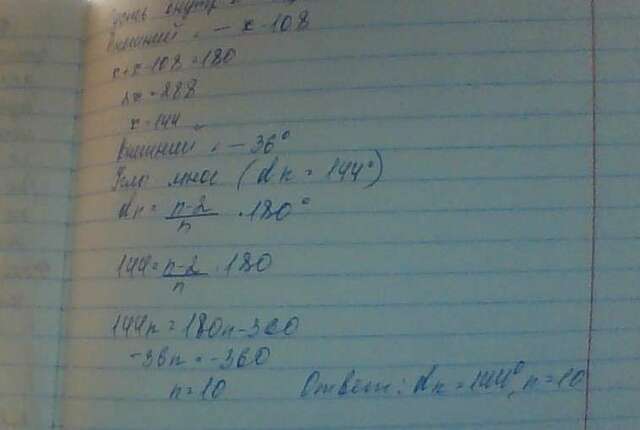 Пусть внутр
Внешний - x-108
x+x-108=180
2x=288
x=144
Внешний - 36°
(αn = 144°)
αn = n-2/n · 180°
144 = n-2/n · 180
144n = 180n-360
-36n = -360
n=10
Ответ: αn = 144°, n=10